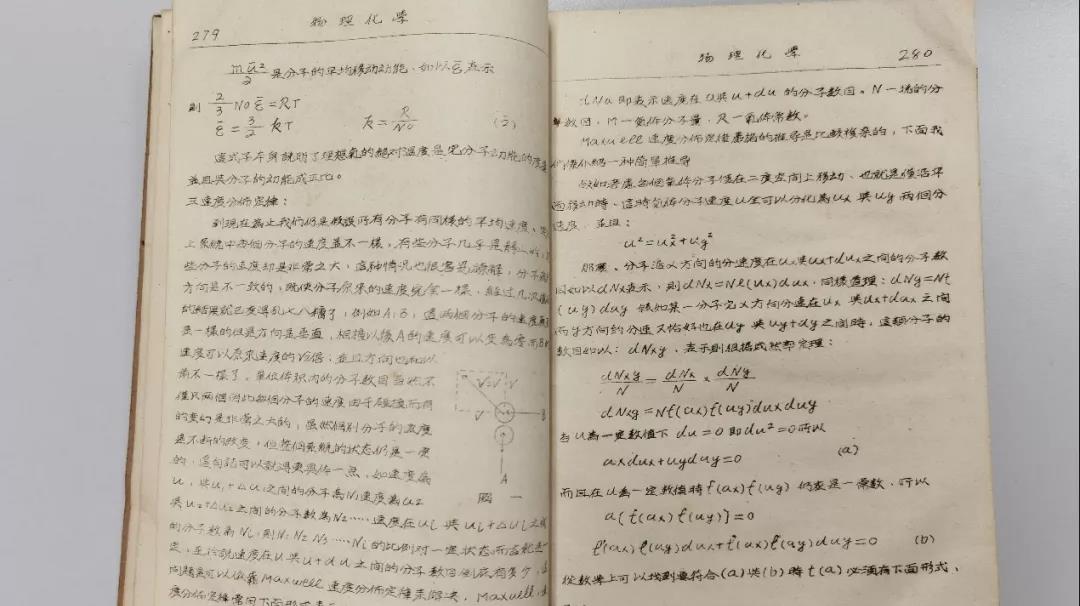 279
物理化學
mū²/2 是分子的平均移動动能、如以ε̄表示
則 2/3 N0 ε̄ = RT
ε̄ = 3/2 kT  k = R/N0 (2)
這式子本身說明了理想氣的絕对溫度是它分子动能的度量
並且与分子的动能成正比。
三速度分佈定律:
到現在為止我們仍是假設所有分子有同樣的平均速度、
上系統中各個分子的速度並不一樣,有些分子几乎是靜止的,
些分子的速度却是非常之大,這种情況也很容易了解,分子
方向是不一致的,既使分子原來的速度完全一樣、經过几次
的結果就速度混乱七八糟了,例如A;B,這兩個分子的速度
是一樣的但是方向是垂直,相撞以後A的速度可以变為零而B的
速度可以原來速度的√2倍,並且方向也和以
前不一樣了。單位体积內的分子数目当然不
僅只兩個因此每個分子的速度由于碰撞而有
的变幻是非常之大的,虽然個別分子的速度
是不断的改变,但整個系統的状态仍是一定
的。這句話可以說得更具体一点,如速度在
u₁与u₁+△u₁之間的分子為N₁速度為u₂
与u₂+△u₂之間的分子数為N₂……速度在Ui与Ui+△Ui之間
的分子数為Ni,則N₁ N₂ N₃……Ni的比例对一定狀态而言就是一
定,至於說速度在U与U+dU之間的分子数目到底有多少,
問題是可以依靠Maxwell速度分佈定律來解决,Maxwell速
度分佈定律
V V=V V
B
A
圖 一
物理化學
280
dNu即表示速度在U与u+du的分子数目。N一塊的分
数目,M一氣体分子量,R一氣体常数。
Maxwell速度分佈定律嚴格的推导是比較複杂的,下面我
們僅介紹一种简單推导
假如考慮每個氣体分子僅在二度空间上移动、也就是僅沿平
面移动時、這時氣体分子速度U全可以分化為Ux与Uy兩個分
速度,並且:
u²=ux²+uy²
那麼、分子沿X方向的分速度在ux与ux+dux之间的分子数
目如以dNx表示,則dNx=Nf(ux)dux,同樣道理:dNy=Nf
(uy)duy 假如某一分子它X方向分速在ux与ux+dux之间
而y方向的分速又恰好也在uy与uy+dy之间時,這類分子的
数目如以:dNxy,表示則根据或然率定理:
dNxy/N = dNx/N × dNy/N
dNxy=Nf(ux)f(uy)duxduy
当U為一定数值下 du=0即du²=0所以
uxdux+uyduy=0 (a)
而且在U為一定数值時f(ux)f(uy)仍表是一常数,所以
d[f(ux)f(uy)]=0
f'(ux)f(uy)dux+f(ux)f'(uy)duy=0 (b)
從数学上可以找到要符合(a)与(b)時f(u)必須有下面形式、